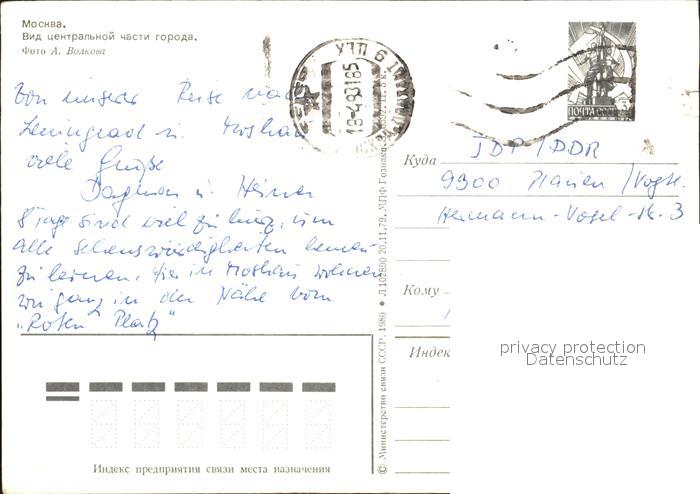 Москва.
Вид центральной части города.
Фото А. Волкова
Von unserer Reise nach
Leningrad u. Moskau
viele Grüße
Dagmar u. Heiner
8 Tage sind viel zu kurz, um
alle Sehenswürdigkeiten kennen
zu lernen. Hier in Moskau wohnen
wir ganz in der Nähe vom
„Roten Platz"
18-483185
ПОЧТА СССР
Куда
DDR
9900 Plauen /Vogtl.
Hermann-Vogel-Str. 3
Кому
Индекс
privacy protection
Datenschutz
Индекс предприятия связи места назначения
© Министерство связи СССР. 1980 • Л 102800 20.11.79. МПФ Гознака.